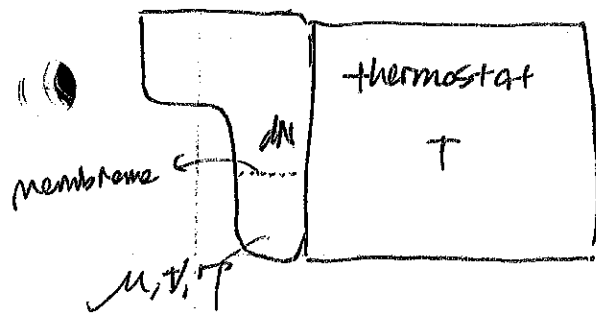 thermostat
T
dN
membrane
μ, V, T